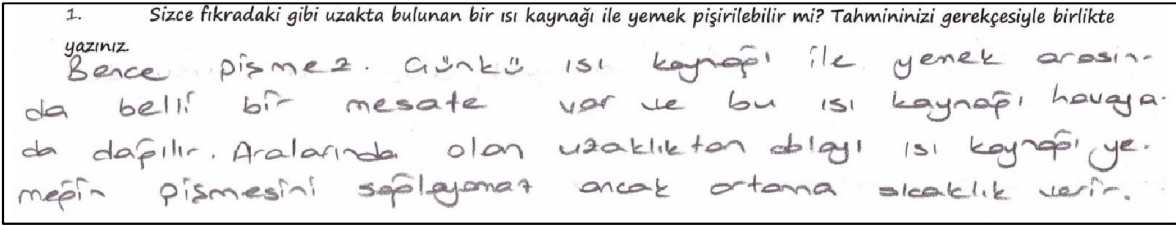 1. Sizce fıkradaki gibi uzakta bulunan bir ısı kaynağı ile yemek pişirilebilir mi? Tahmininizi gerekçesiyle birlikte
yazınız.
Bence pişmez. Çünkü ısı kaynağı ile yemek arasın-
da belli bir mesafe var ve bu ısı kaynağı havaya.
da dağılır. Aralarında olan uzaklıktan dolayı ısı kaynağı ye-
meğin pişmesini sağlayamaz ancak ortama sıcaklık verir.